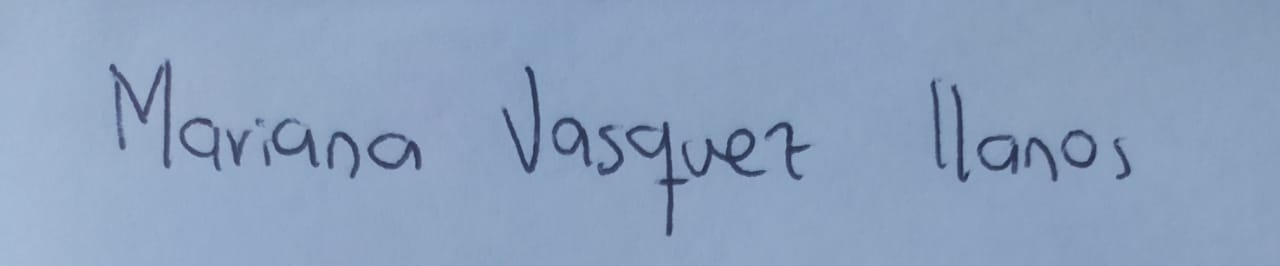 Mariana Vasquez llanos